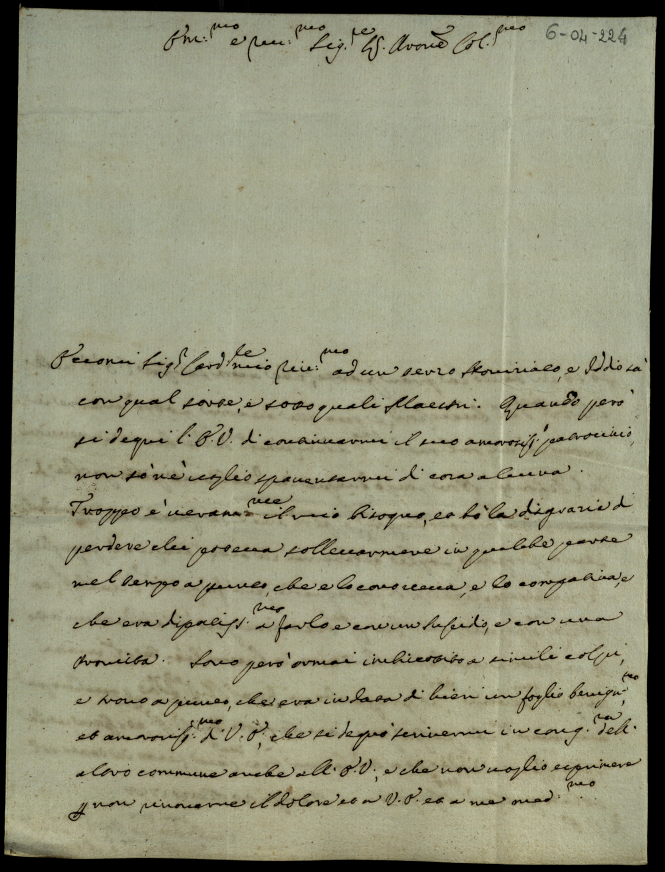 Em.mo e Rev.mo Sig.re Sig. Pron.e Col.mo
6-04-224
Eccomi Sig.r Card.le mio Riv.mo ad un terzo Noviziato, e Iddio sà
con qual sorte, e sotto quali Maestri. Quando però
si degni l'E.V. di continuarmi il suo amorosiss.o patrocinio,
non sò nè voglio spaventarmi di cosa alcuna.
Troppo è veram.me il mio bisogno, et hò la disgrazia di
perdere chi poteva sollevarmene in qualche parte
nel tempo a punto, che e lo conosceva, e lo compativa, e
che era dispostiss.mo a farlo e con un sussidio, e con una
. Sono però ormai a simili colpi,
e trovo a punto, che era in data di hieri un foglio benign.mo
et amoroviss.mo di V.E., che si degnò scrivermi in cong.ra dell'
altro commune anche all'E.V., e che non voglio esprimere
p non rinovarne il dolore et a V.E. et a me med.mo